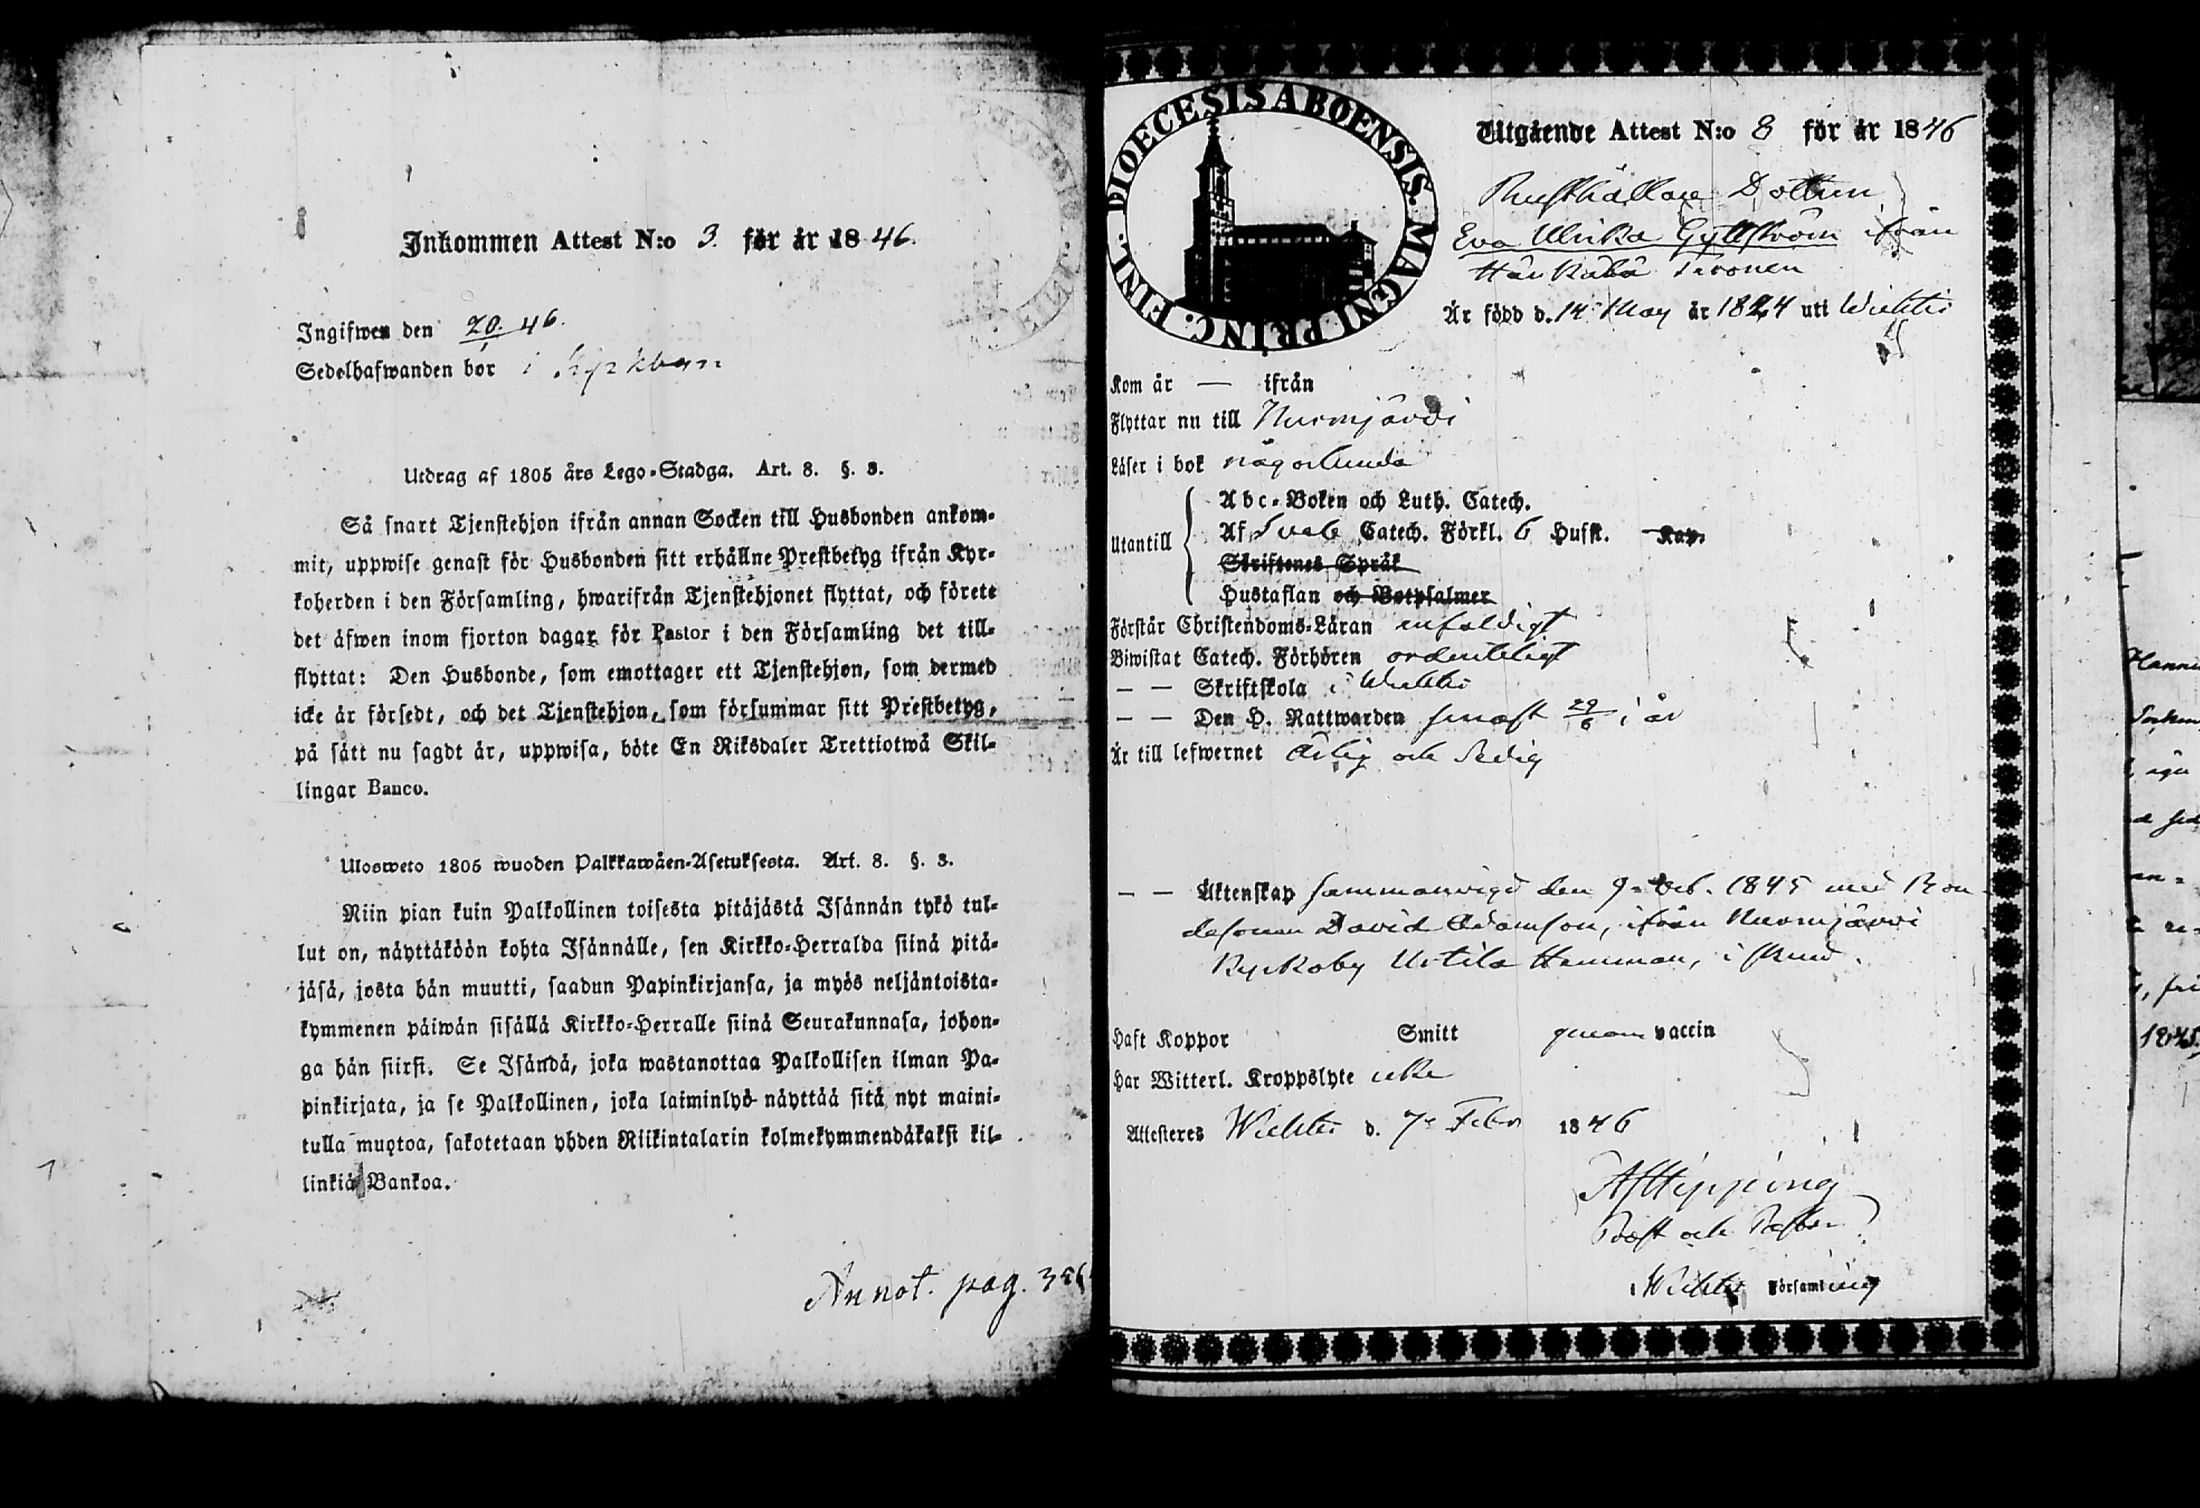 Inkommen Attest N:o 3. för år 1846.
Ingifwen den 20. 46.
Sedelhafwanden bor i Kyrkbyn
Utdrag af 1805 års Lego-Stadga. Art. 8. §. 3.
Så snart Tjenstehjon ifrån annan Socken till Husbonden ankom-
mit, uppwise genast för Husbonden sitt erhållne Prestbetyg ifrån Kyr-
koherden i den Församling, hwarifrån Tjenstehjonet flyttat, och förete
det äfwen inom fjorton dagar för Pastor i den Församling det till-
flyttat: Den Husbonde, som emottager ett Tjenstehjon, som dermed
icke är försedt, och det Tjenstehjon, som försummar sitt Prestbetyg,
på sätt nu sagdt är, uppwisa, böte En Riksdaler Trettiotwå Skil-
lingar Banco.
Ulosweto 1805 wuoden Palkkawäen-Asetuksesta. Art. 8. §. 3.
Niin pian kuin Palkollinen toisesta pitäjästä Isännän tykö tul-
lut on, näyttäköön kohta Isännälle, sen Kirkko-Herralda siinä pitä-
jäsä, josta hän muutti, saadun Papinkirjansa, ja myös neljäntoista-
kymmenen päiwän sisällä Kirkko-Herralle siinä Seurakunnasa, johon-
ga hän siirsi. Se Isändä, joka wastanottaa Palkollisen ilman Pa-
pinkirjata, ja se Palkollinen, joka laiminlyö näyttää sitä nyt maini-
tulla muotoa, sakotetaan yhden Riikintalarin kolmekymmendäkaksi kil-
linkiä Bankoa.
Annot. pag.
DIOECESIS ABOENSIS. MAGNI PRINC. FINL.
Utgående Attest N:o 8 för år 1846
Rusthållare Dottren
Eva Ulrika Gyllström ifrån
Härkälä
Är född d. 14 May år 1824 uti Wichtis
Kom år — ifrån
Flyttar nu till Nurmijärvi
Läser i bok någorlunda
Utantill
Abc-Boken och Luth. Catech.
Af Sveb. Catech. Förkl. 6 Hufst. Kap.
Skriftenes Språk
Hustaflan och Botpsalmer
Förstår Christendoms-Läran enfaldigt
Biwistat Catech. Förhören ordenteligt
— — Skriftskola i Wichtis
— — Den H. Nattwarden senast 29/6 i år
Är till lefwernet Ärlig och Sedig
— — Äktenskap sammanvigd den 9 1845 med Bon-
desonen David Adamson, ifrån Nurmijärvi
Kyrkoby Uotila Hemman, i
Haft Koppor Smitt genom vaccin
Har Witterl. Kroppslyte icke
Attesteres Wichtis d. 7 Febr 1846
Prost och Pastor
Wichtis Församling